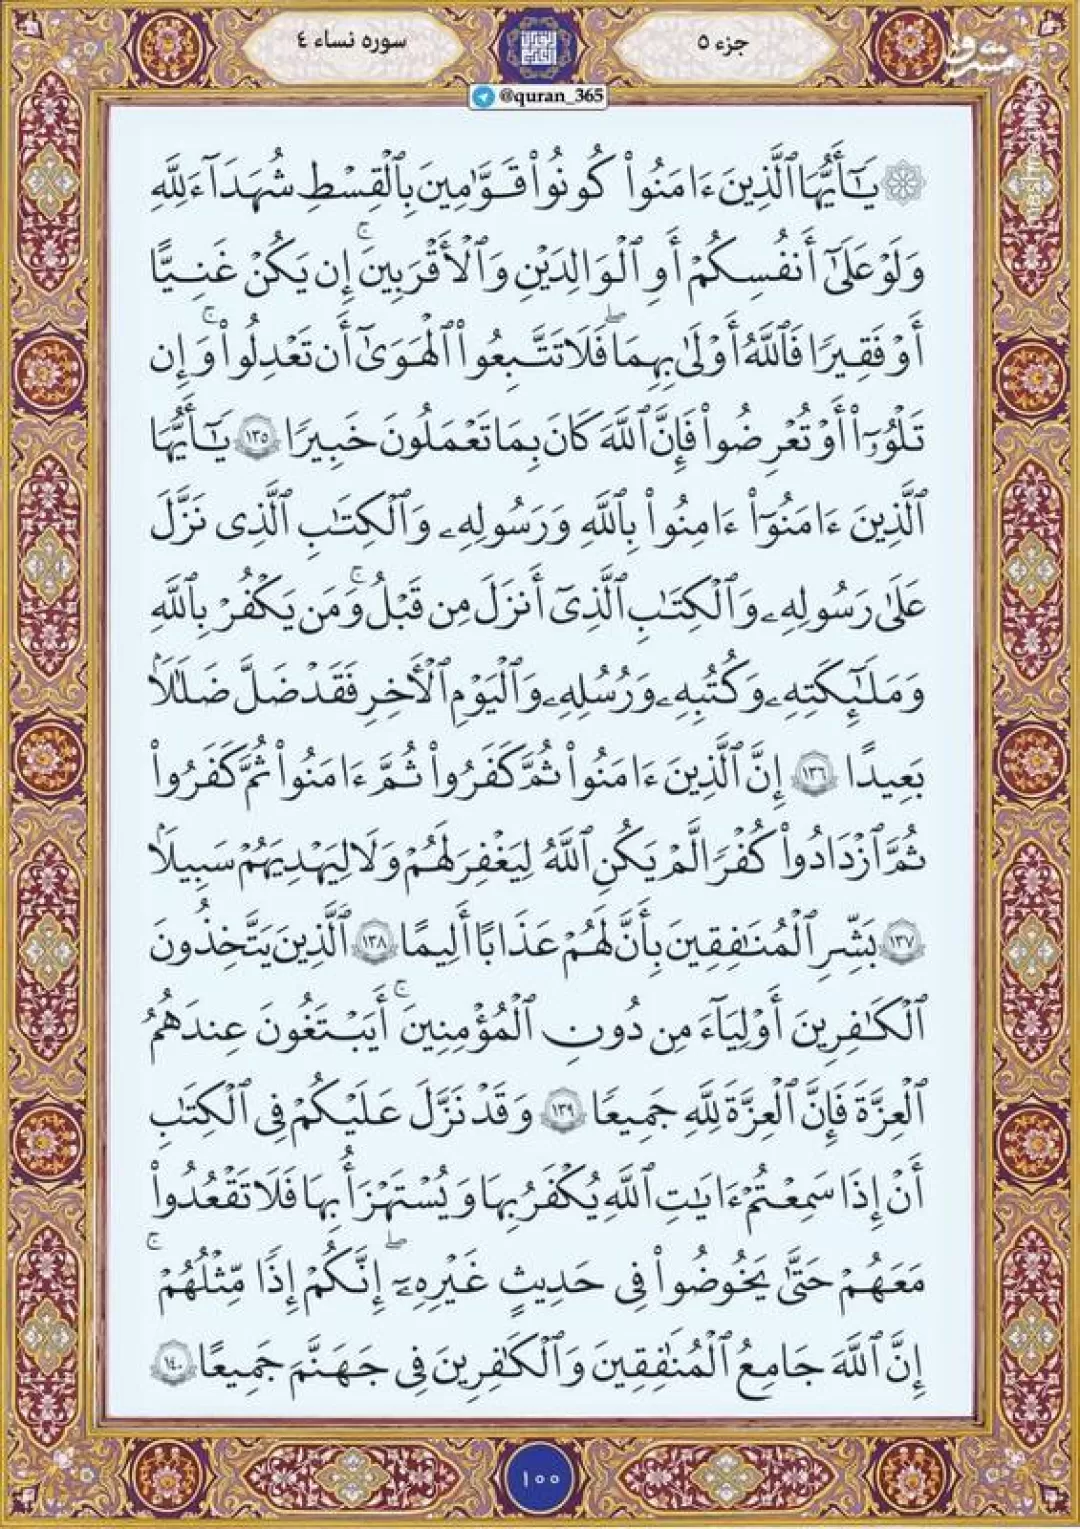 جزء ٥
سوره نساء ٤
@quran_365
مشرق
mashreghnews
۞ يَـٰٓأَيُّهَا ٱلَّذِينَ ءَامَنُوا۟ كُونُوا۟ قَوَّٰمِينَ بِٱلْقِسْطِ شُهَدَآءَ لِلَّهِ
وَلَوْ عَلَىٰٓ أَنفُسِكُمْ أَوِ ٱلْوَٰلِدَيْنِ وَٱلْأَقْرَبِينَ ۚ إِن يَكُنْ غَنِيًّا
أَوْ فَقِيرًا فَٱللَّهُ أَوْلَىٰ بِهِمَا ۖ فَلَا تَتَّبِعُوا۟ ٱلْهَوَىٰٓ أَن تَعْدِلُوا۟ ۚ وَإِن
تَلْوُۥٓا۟ أَوْ تُعْرِضُوا۟ فَإِنَّ ٱللَّهَ كَانَ بِمَا تَعْمَلُونَ خَبِيرًا ١٣٥ يَـٰٓأَيُّهَا
ٱلَّذِينَ ءَامَنُوٓا۟ ءَامِنُوا۟ بِٱللَّهِ وَرَسُولِهِۦ وَٱلْكِتَـٰبِ ٱلَّذِى نَزَّلَ
عَلَىٰ رَسُولِهِۦ وَٱلْكِتَـٰبِ ٱلَّذِىٓ أَنزَلَ مِن قَبْلُ ۚ وَمَن يَكْفُرْ بِٱللَّهِ
وَمَلَـٰٓئِكَتِهِۦ وَكُتُبِهِۦ وَرُسُلِهِۦ وَٱلْيَوْمِ ٱلْـَٔاخِرِ فَقَدْ ضَلَّ ضَلَـٰلًۢا
بَعِيدًا ١٣٦ إِنَّ ٱلَّذِينَ ءَامَنُوا۟ ثُمَّ كَفَرُوا۟ ثُمَّ ءَامَنُوا۟ ثُمَّ كَفَرُوا۟
ثُمَّ ٱزْدَادُوا۟ كُفْرًا لَّمْ يَكُنِ ٱللَّهُ لِيَغْفِرَ لَهُمْ وَلَا لِيَهْدِيَهُمْ سَبِيلًۢا
١٣٧ بَشِّرِ ٱلْمُنَـٰفِقِينَ بِأَنَّ لَهُمْ عَذَابًا أَلِيمًا ١٣٨ ٱلَّذِينَ يَتَّخِذُونَ
ٱلْكَـٰفِرِينَ أَوْلِيَآءَ مِن دُونِ ٱلْمُؤْمِنِينَ ۚ أَيَبْتَغُونَ عِندَهُمُ
ٱلْعِزَّةَ فَإِنَّ ٱلْعِزَّةَ لِلَّهِ جَمِيعًا ١٣٩ وَقَدْ نَزَّلَ عَلَيْكُمْ فِى ٱلْكِتَـٰبِ
أَنْ إِذَا سَمِعْتُمْ ءَايَـٰتِ ٱللَّهِ يُكْفَرُ بِهَا وَيُسْتَهْزَأُ بِهَا فَلَا تَقْعُدُوا۟
مَعَهُمْ حَتَّىٰ يَخُوضُوا۟ فِى حَدِيثٍ غَيْرِهِۦٓ ۖ إِنَّكُمْ إِذًا مِّثْلُهُمْ ۗ
إِنَّ ٱللَّهَ جَامِعُ ٱلْمُنَـٰفِقِينَ وَٱلْكَـٰفِرِينَ فِى جَهَنَّمَ جَمِيعًا ١٤٠
١٠٠